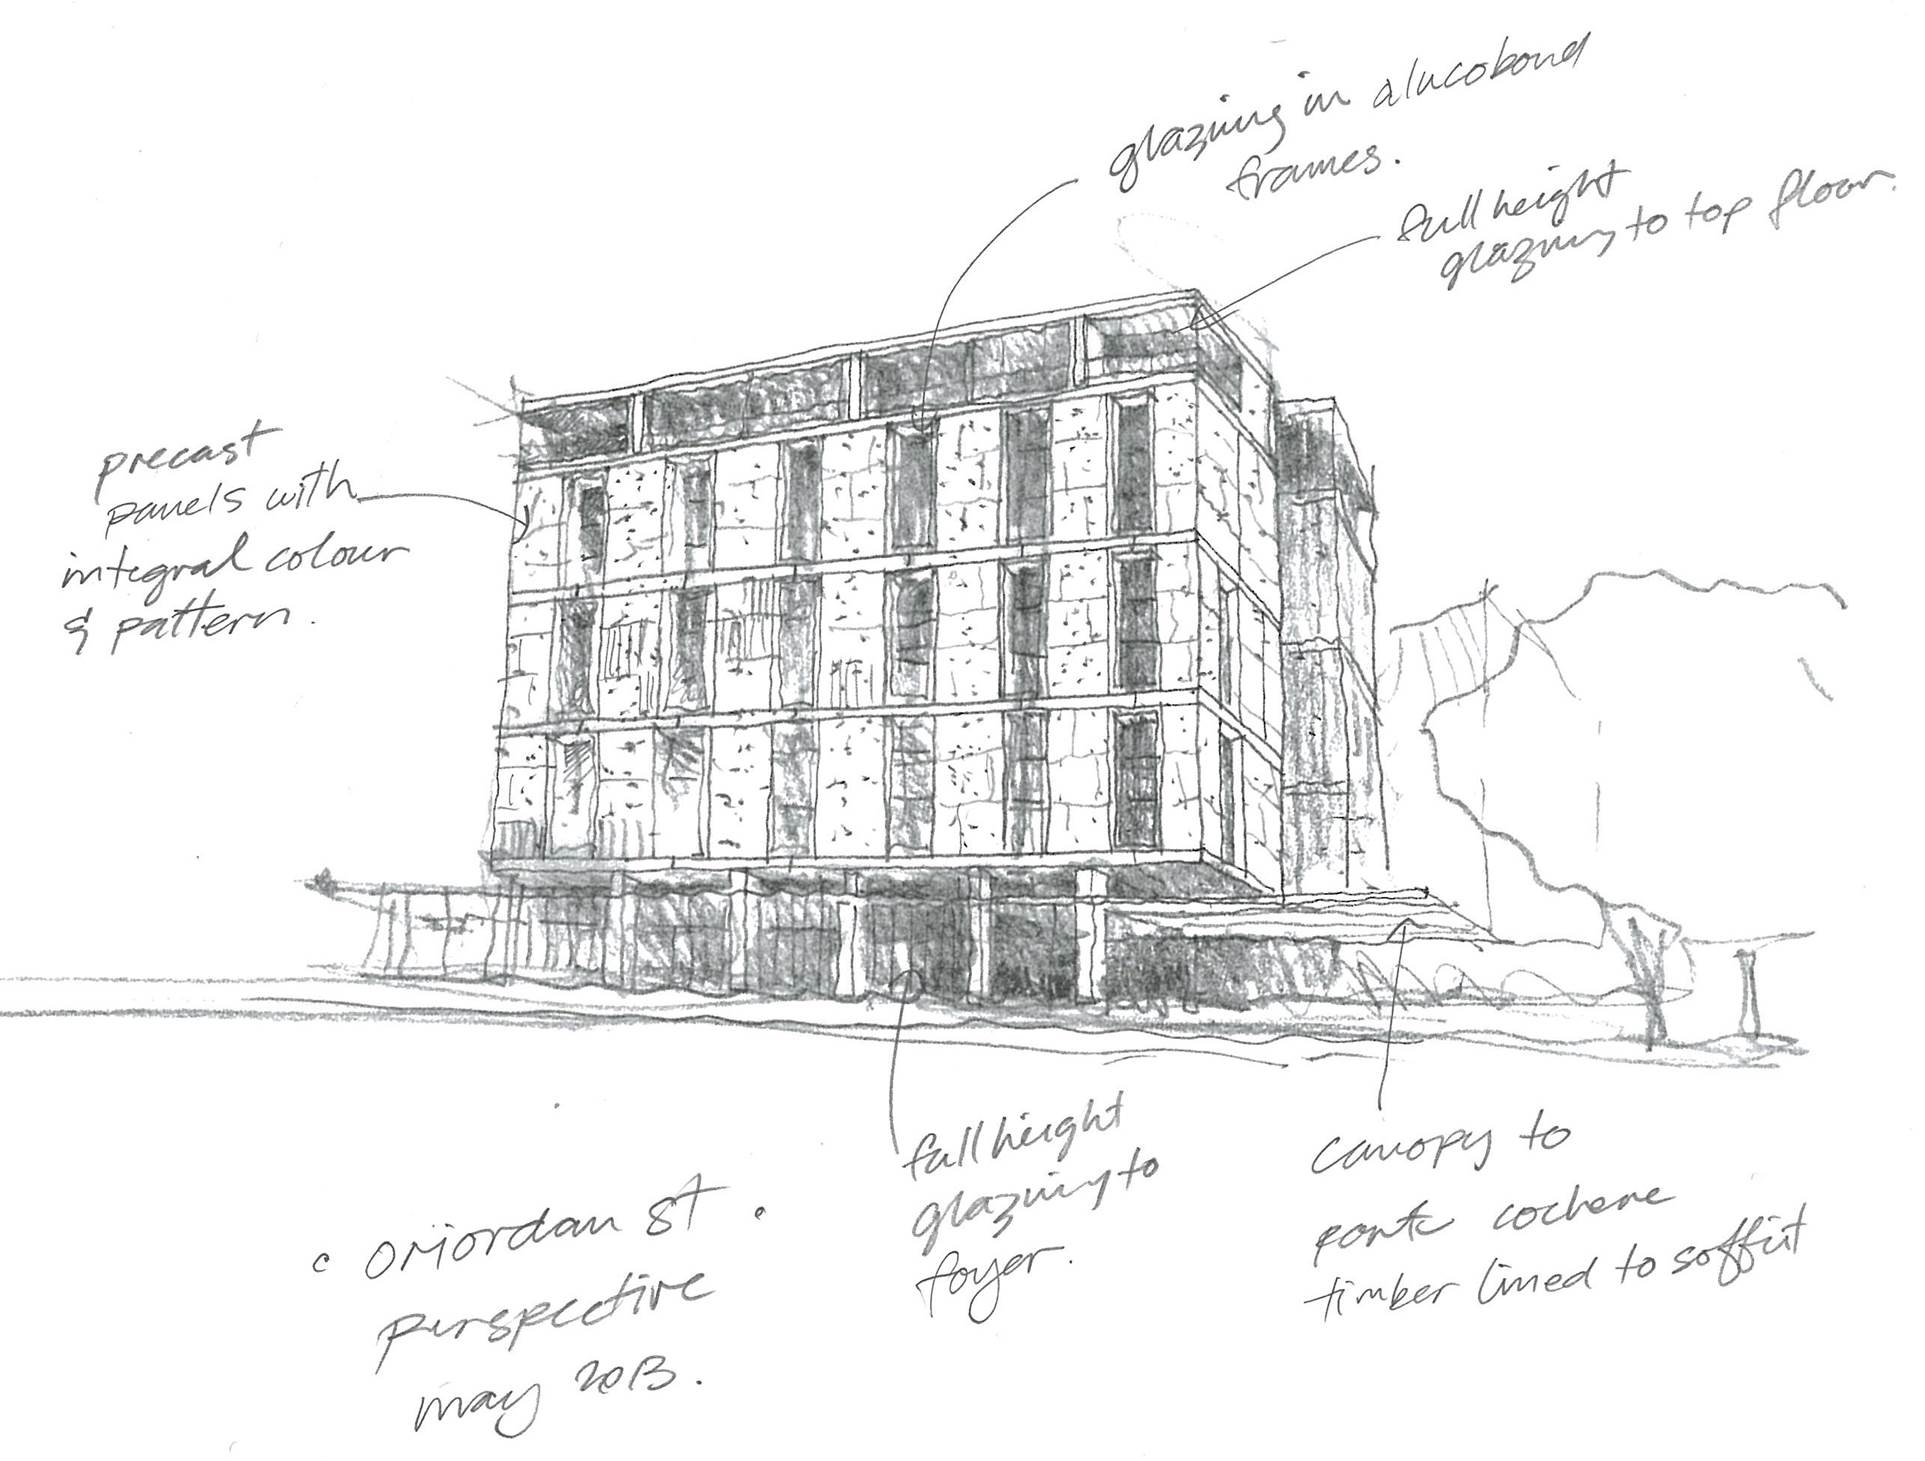 glazing in alucobond
frames.
full height
glazing to top floor.
precast
panels with
integral colour
& pattern.
full height
glazing to
foyer.
canopy to
porte cochere
timber lined to soffit
oriordan st.
perspective
may 2013.